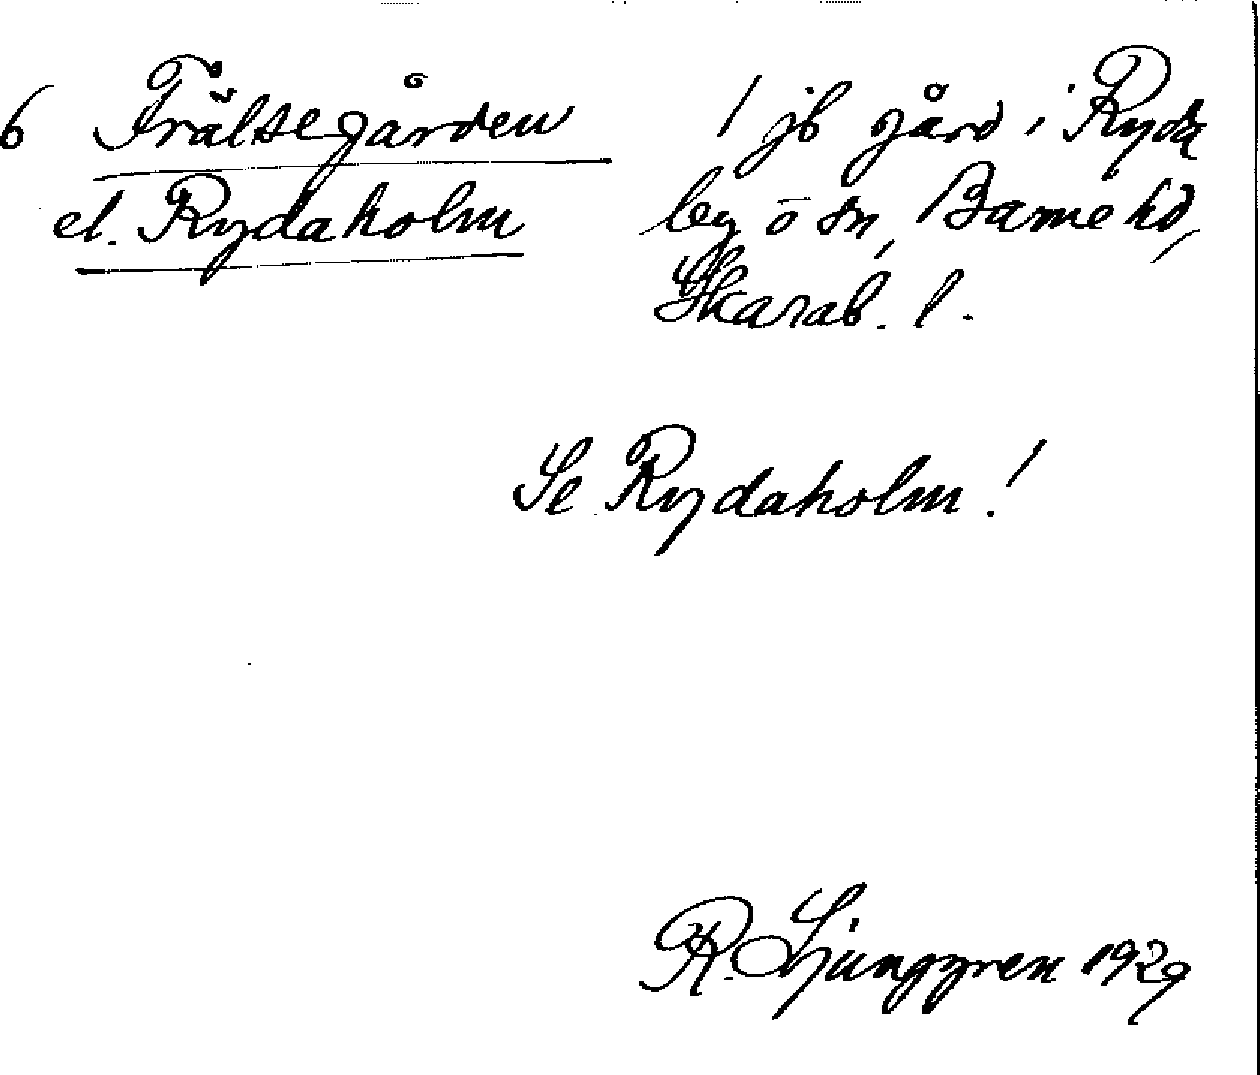 6 Frälsegården 1 jb gård i Ryda
el. Rydaholm by o sn, Barne hd,
Skarab. l.
Se Rydaholm!
R. Ljunggren 1929